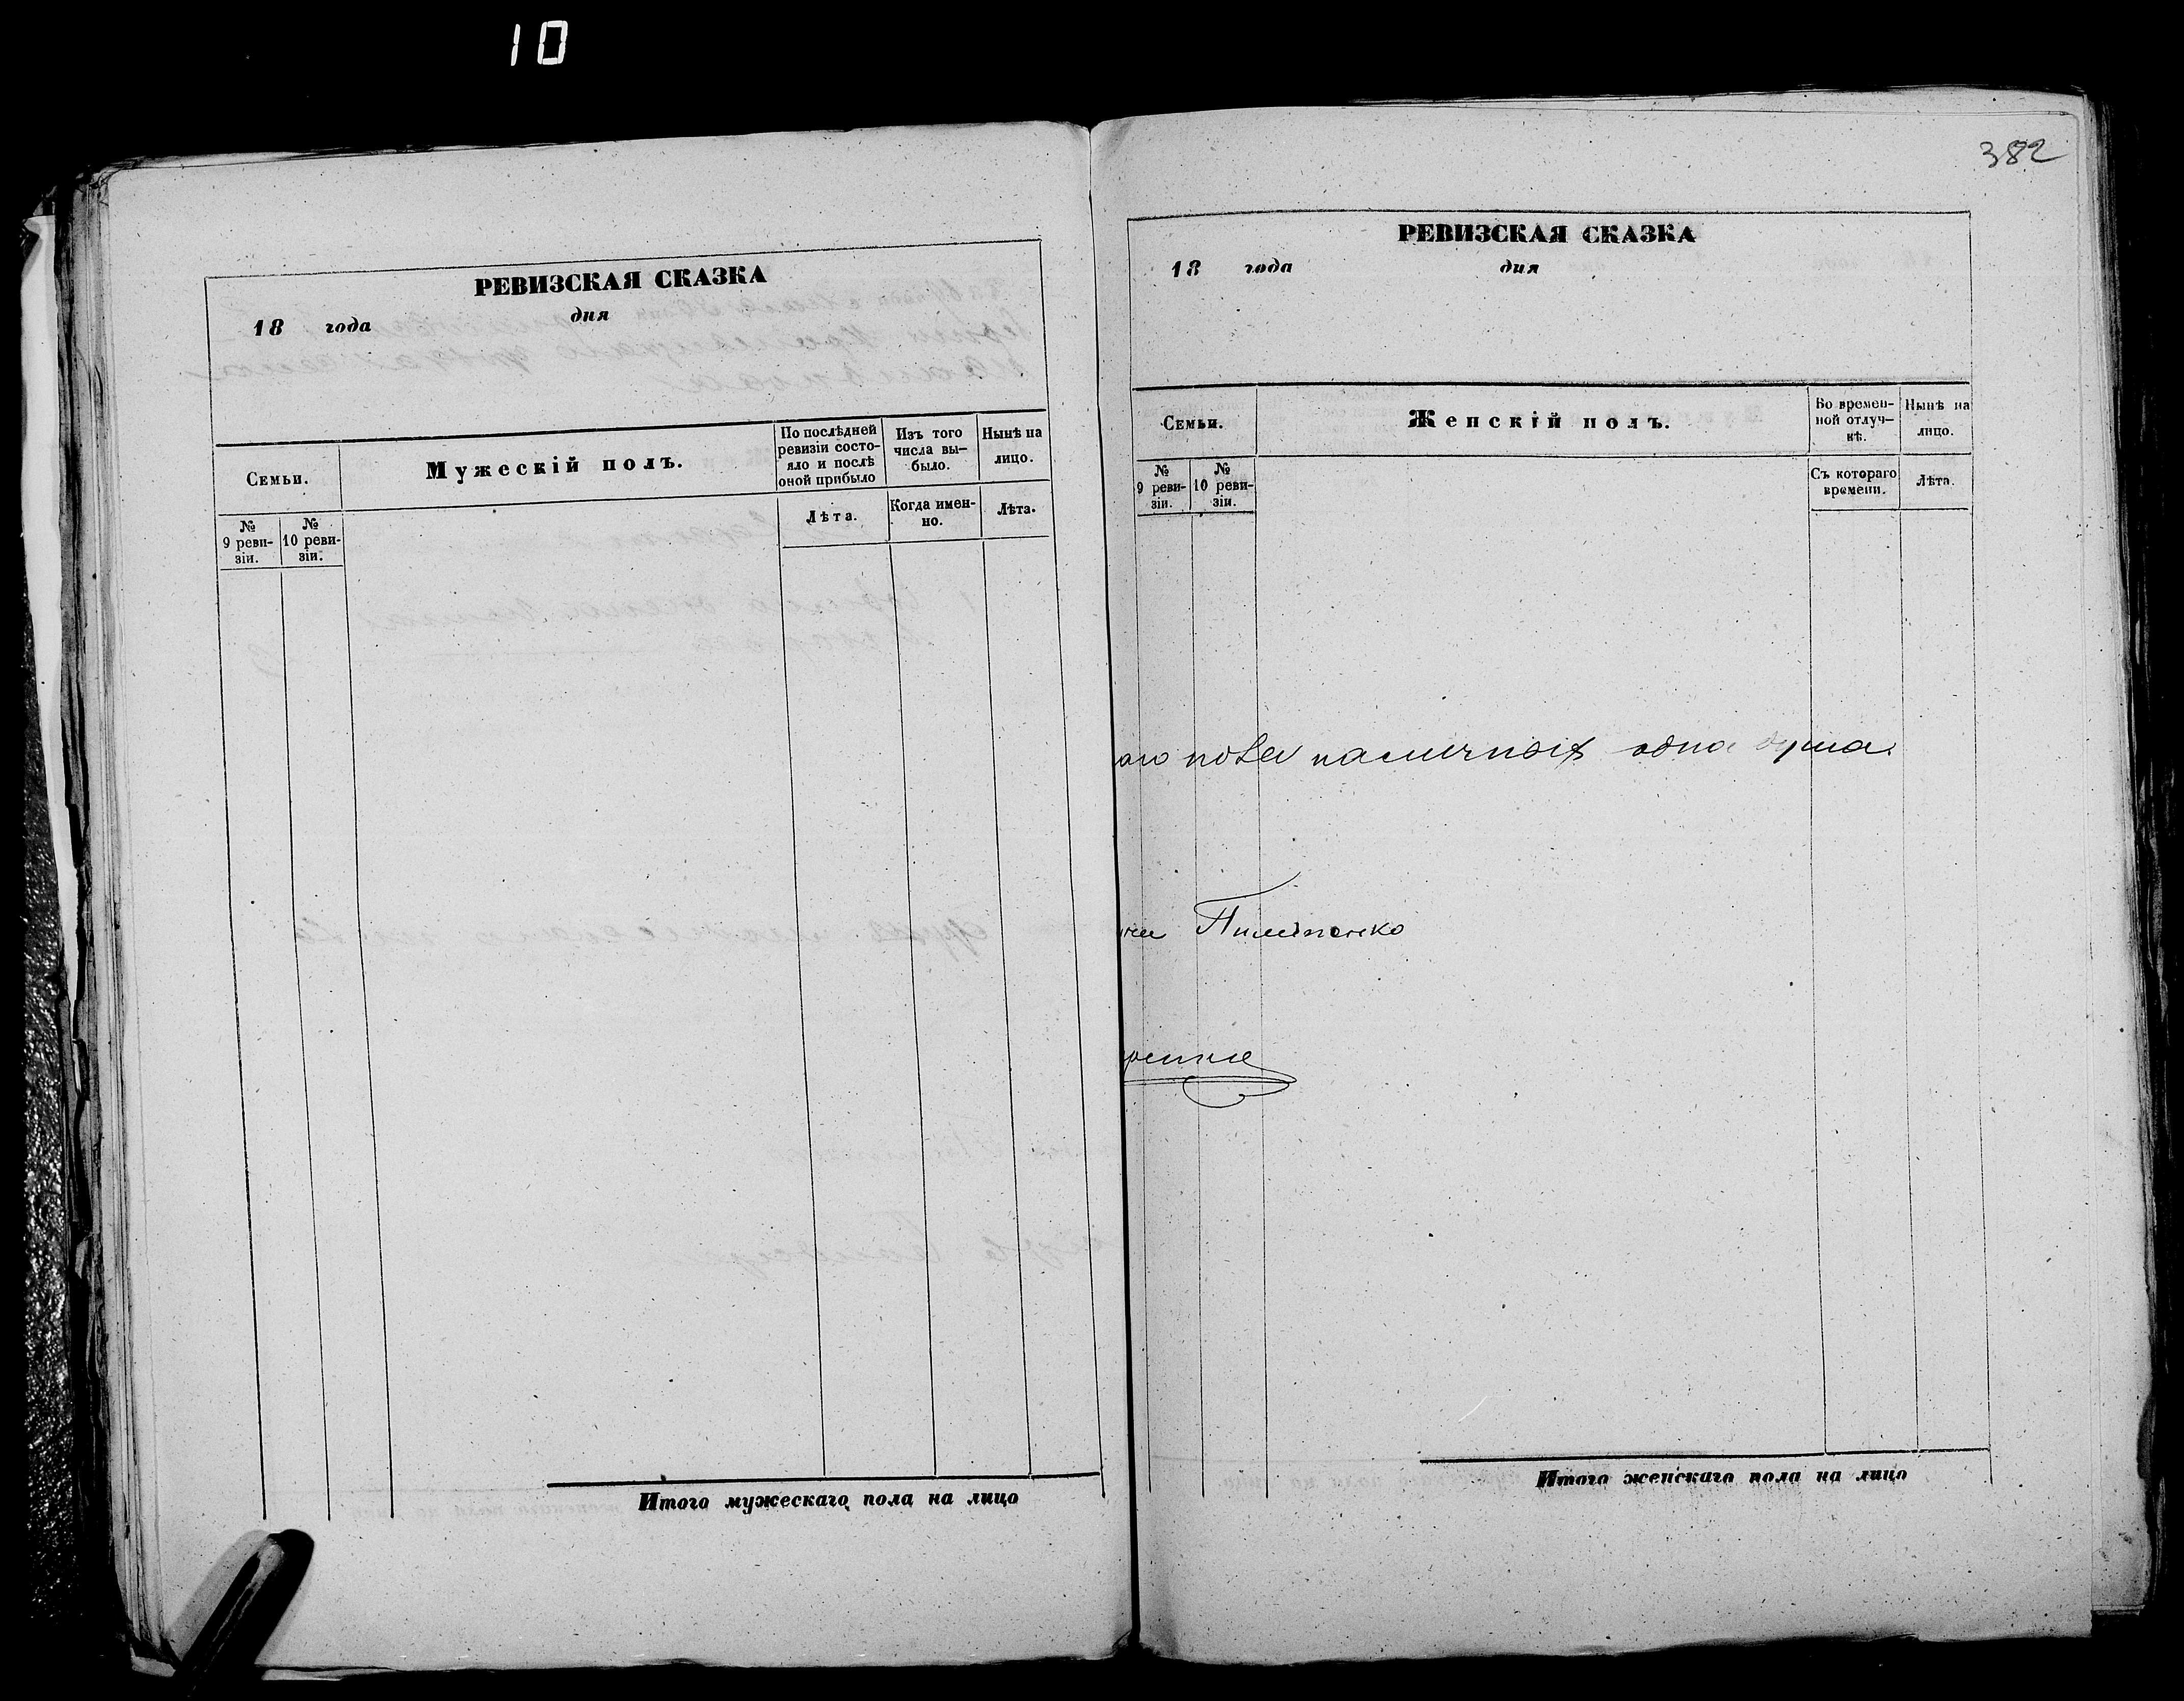 10
РЕВИЗСКАЯ СКАЗКА
18 года дня
Семьи.
Мужескій полъ.
По послѣдней ревизіи состо-
яло и послѣ
оной прибыло
Изъ того
числа вы-
было.
Нынѣ на
лицо.
№
9 реви-
зіи.
№
10 реви-
зіи.
Лѣта.
Когда имен-
но.
Лѣта.
Итого мужескаго пола на лицо
382
РЕВИЗСКАЯ СКАЗКА
18 года дня
Семьи.
Женскій полъ.
Во времен-
ной отлуч-
кѣ.
Нынѣ на
лицо.
№
9 реви-
зіи.
№
10 реви-
зіи.
Съ котораго
времени.
Лѣта.
аго пола наличныхъ одна душа.
Пилипенко
Итого женскаго пола на лицо